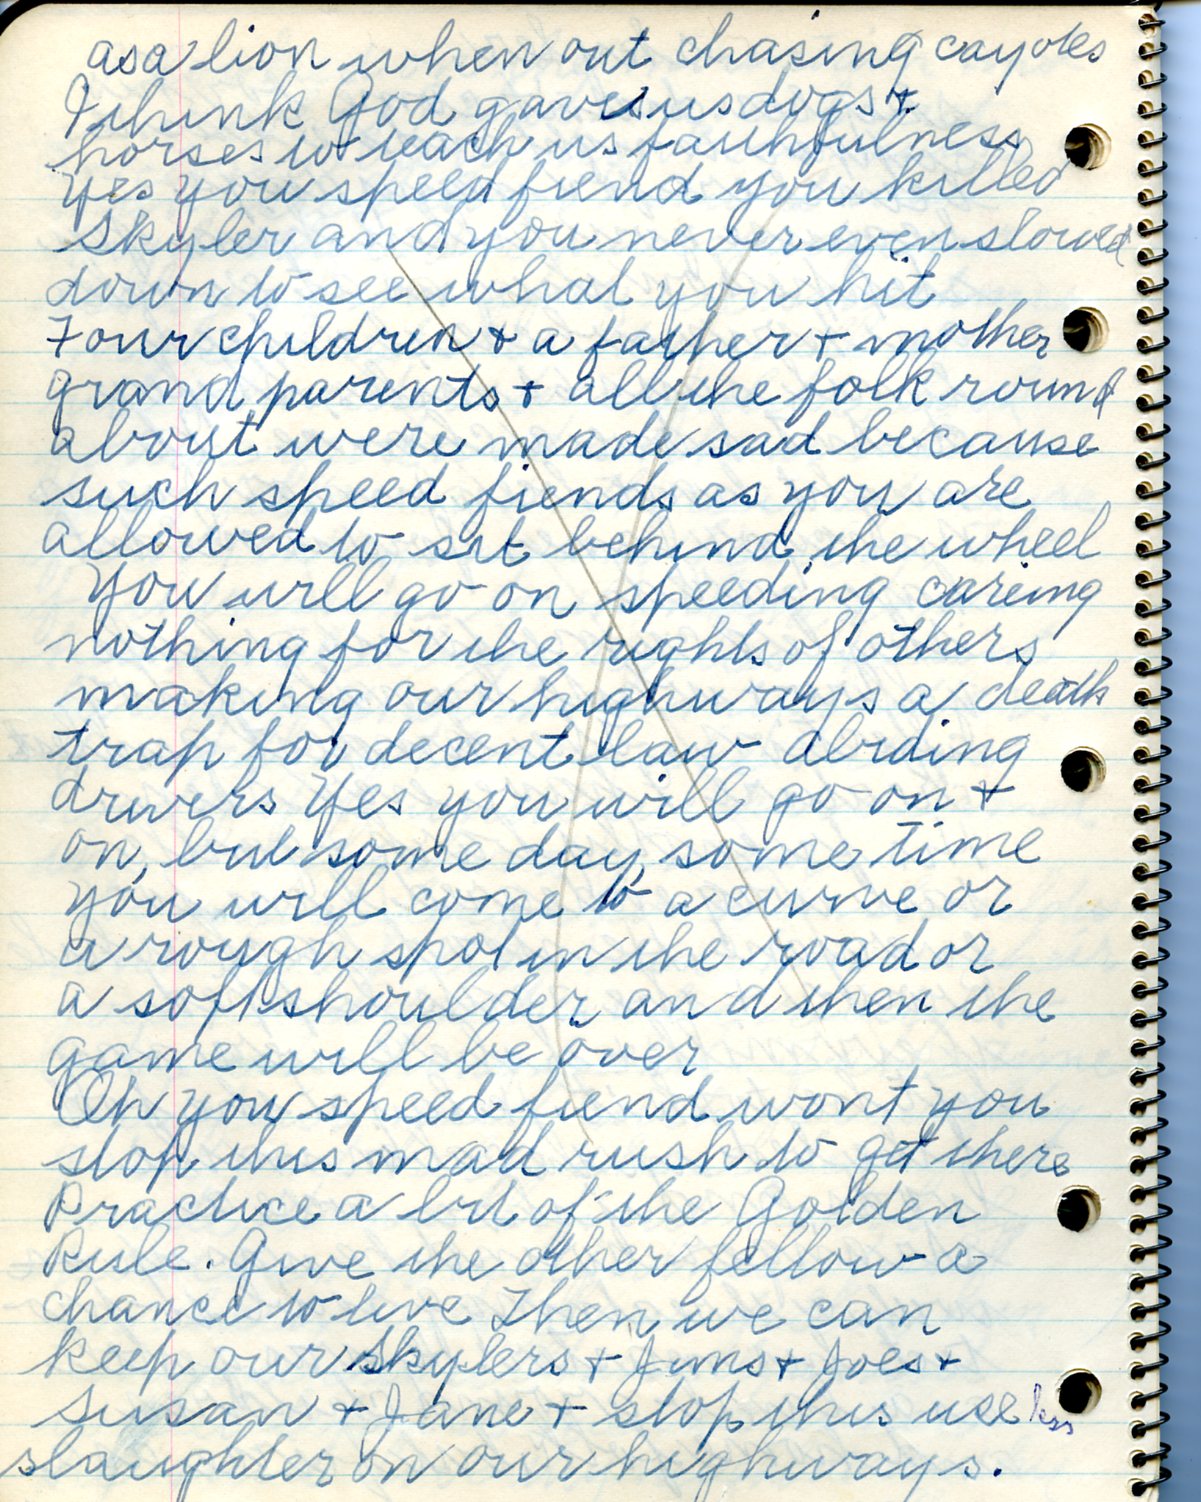 as a lion when out chasing cayotes
I think God gave us dogs +
horses to teach us faithfulness
Yes you speed fiend you killed
Skyler and you never even slowed
down to see what you hit
Four children + a father + mother
grand parents + all the folk round
about were made sad because
such speed fiends as you are
allowed to sit behind the wheel
You will go on speeding careing
nothing for the rights of others
making our highways a death
trap for decent law abiding
drivers Yes you will go on +
on, but some day, some time
you will come to a curve or
a rough spot in the road or
a soft shoulder and then the
game will be over
Oh you speed fiend wont you
stop this mad rush to get there
Practice a bit of the Golden
Rule. Give the other fellow a
chance to live Then we can
keep our Skylers + Jims + Joes +
Susan + Jane + stop this useless
slaughter on our highways.